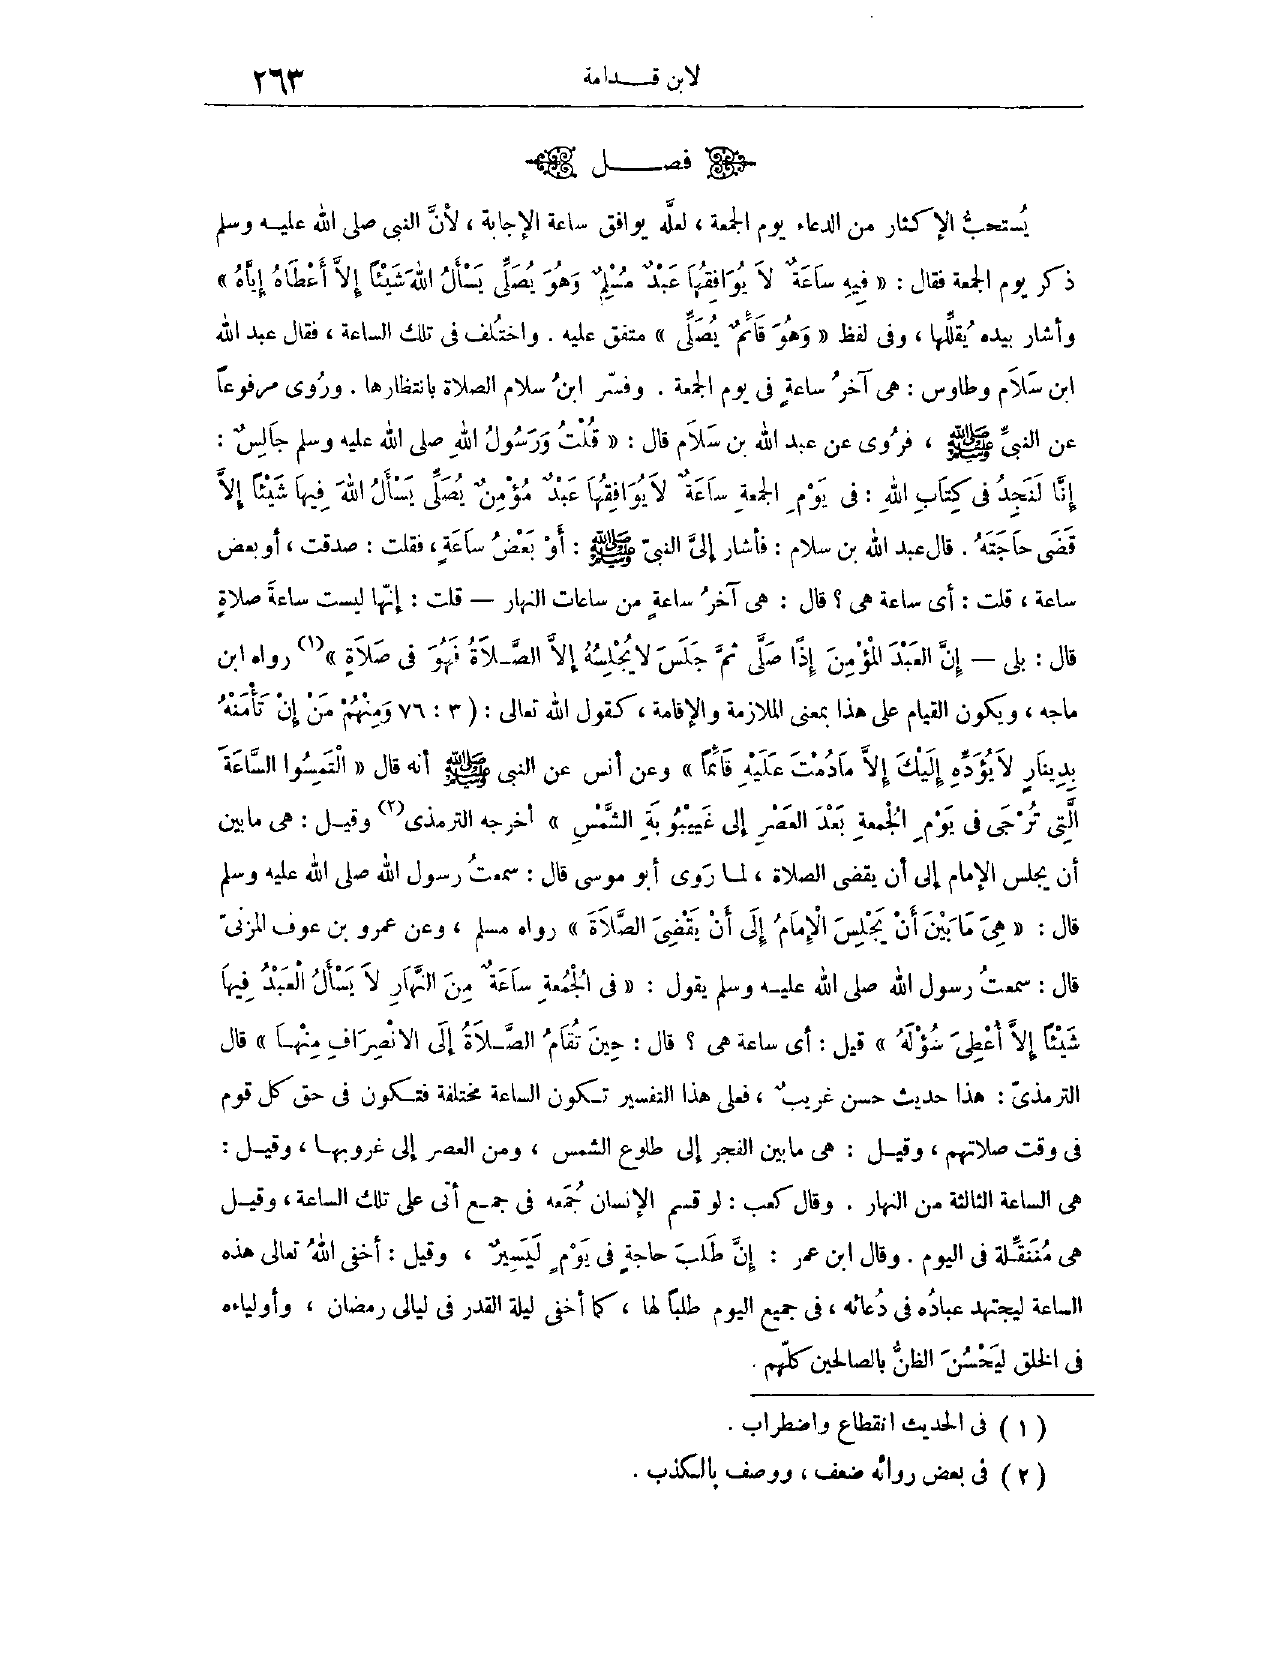 لابن قــدامة ٢٦٣
فصــل
يُستحبُّ الإكثار من الدعاء يوم الجمعة ، لعلَّه يوافق ساعة الإجابة ، لأنَّ النبى صلى الله عليه وسلم
ذكر يوم الجمعة فقال : « فِيهِ سَاعَةٌ لاَ يُوَافِقُهَا عَبْدٌ مُسْلِمٌ وَهُوَ يُصَلِّى يَسْأَلُ اللهَ شَيْئًا إِلاَّ أَعْطَاهُ إِيَّاهُ »
وأشار بيده يُقلِّلها ، وفى لفظ « وَهُوَ قَائِمٌ يُصَلِّى » متفق عليه . واختُلف فى تلك الساعة ، فقال عبد الله
ابن سَلاَم وطاوس : هى آخرُ ساعةٍ فى يوم الجمعة . وفسّر ابنُ سلام الصلاة بانتظارها . ورُوى مرفوعاً
عن النبىِّ ﷺ ، فرُوى عن عبد الله بن سَلاَم قال : « قُلْتُ وَرَسُولُ اللهِ صلى الله عليه وسلم جَالِسٌ :
إِنَّا لَنَجِدُ فى كِتَابِ اللهِ : فى يَوْمِ الجمعةِ سَاعَةٌ لاَ يُوَافِقُهَا عَبْدٌ مُؤْمِنٌ يُصَلِّى يَسْأَلُ اللهَ فِيهَا شَيْئًا إِلاَّ
قَضَى حَاجَتَهُ . قال عبد الله بن سلام : فأشار إلىَّ النبىّ ﷺ : أَوْ بَعْضُ سَاعَةٍ ، فقلت : صدقت ، أو بعض
ساعة ، قلت : أى ساعة هى ؟ قال : هى آخرُ ساعةٍ من ساعات النهار — قلت : إنّها ليست ساعةَ صلاةٍ
قال : بلى — إِنَّ العَبْدَ الْمُؤْمِنَ إِذَا صَلَّى ثمَّ جَلَسَ لا يُجْلِسُهُ إِلاَّ الصَّلاَةُ فَهُوَ فى صَلاَةٍ »(١) رواه ابن
ماجه ، ويكون القيام على هذا بمعنى الملازمة والإقامة ، كقول الله تعالى : ( ٣ : ٧٦ وَمِنْهُمْ مَنْ إِنْ تَأْمَنْهُ
بِدِينَارٍ لاَ يُؤَدِّهِ إِلَيْكَ إِلاَّ مَادُمْتَ عَلَيْهِ قَائِمًا » وعن أنس عن النبى ﷺ أنه قال « الْتَمِسُوا السَّاعَةَ
الَّتِى تُرْجَى فى يَوْمِ الجُمعةِ بَعْدَ العَصْرِ إلى غَيْبُوبَةِ الشَّمْسِ » أخرجه الترمذى(٢) وقيل : هى مابين
أن يجلس الإمام إلى أن يقضى الصلاة ، لما رَوى أبو موسى قال : سمعتُ رسول الله صلى الله عليه وسلم
قال : « هِىَ مَابَيْنَ أَنْ يَجْلِسَ الْإِمَامُ إِلَى أَنْ يَقْضِىَ الصَّلاَةَ » رواه مسلم ، وعن عمرو بن عوف المزنىّ
قال : سمعتُ رسول الله صلى الله عليه وسلم يقول : « فى الْجُمُعةِ سَاعَةٌ مِنَ النَّهَارِ لاَ يَسْأَلُ الْعَبْدُ فِيهَا
شَيْئًا إِلاَّ أُعْطِىَ سُؤْلَهُ » قيل : أى ساعة هى ؟ قال : حِينَ تُقَامُ الصَّلاَةُ إِلَى الانْصِرَافِ مِنْهَا » قال
الترمذىّ : هذا حديث حسن غريبٌ ، فعلى هذا التفسير تكون الساعة مختلفة فتكون فى حق كل قوم
فى وقت صلاتهم ، وقيل : هى مابين الفجر إلى طلوع الشمس ، ومن العصر إلى غروبها ، وقيل :
هى الساعة الثالثة من النهار . وقال كعب : لو قسم الإنسان جُمَعه فى جمع أتى على تلك الساعة ، وقيل
هى مُتَنَقِّلة فى اليوم . وقال ابن عمر : إِنَّ طَلَبَ حاجةٍ فى يَوْمٍ لَيَسِيرٌ ، وقيل : أخفى اللهُ تعالى هذه
الساعة ليجتهد عبادُه فى دُعائه ، فى جميع اليوم طلباً لها ، كما أخفى ليلة القدر فى ليالى رمضان ، وأولياءه
فى الخلق ليَحْسُنَ الظنُّ بالصالحين كلّهم .
( ١ ) فى الحديث انقطاع واضطراب .
( ٢ ) فى بعض رواته ضعف ، ووصف بالكذب .